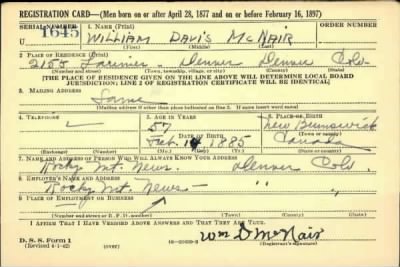 REGISTRATION CARD—(Men born on or after April 28, 1877 and on or before February 16, 1897)
SERIAL NUMBER 1. NAME (Print) ORDER NUMBER
U 1645 WILLIAM DAVIS McNAIR
(First) (Middle) (Last)
2. PLACE OF RESIDENCE (Print)
2155 Larimer Denver Denver Colo
(Number and street) (Town, township, village, or city) (County) (State)
[THE PLACE OF RESIDENCE GIVEN ON THE LINE ABOVE WILL DETERMINE LOCAL BOARD
JURISDICTION; LINE 2 OF REGISTRATION CERTIFICATE WILL BE IDENTICAL]
3. MAILING ADDRESS
Same
(Mailing address if other than place indicated on line 2. If same insert word same)
4. TELEPHONE 5. AGE IN YEARS 6. PLACE OF BIRTH
57 New Brunswick
DATE OF BIRTH (Town or county)
Oct. 1885 Canada
(Exchange) (Number) (Mo.) (Day) (Yr.) (State or country)
7. NAME AND ADDRESS OF PERSON WHO WILL ALWAYS KNOW YOUR ADDRESS
Rocky Mt. News. Denver Colo.
8. EMPLOYER'S NAME AND ADDRESS
Rocky Mt. News— " " "
9. PLACE OF EMPLOYMENT OR BUSINESS
(Number and street or R. F. D. number) (Town) (County) (State)
I AFFIRM THAT I HAVE VERIFIED ABOVE ANSWERS AND THAT THEY ARE TRUE.
D. S. S. Form 1
(Revised 4-1-42) (over) Wm D McNair
(Registrant's signature)